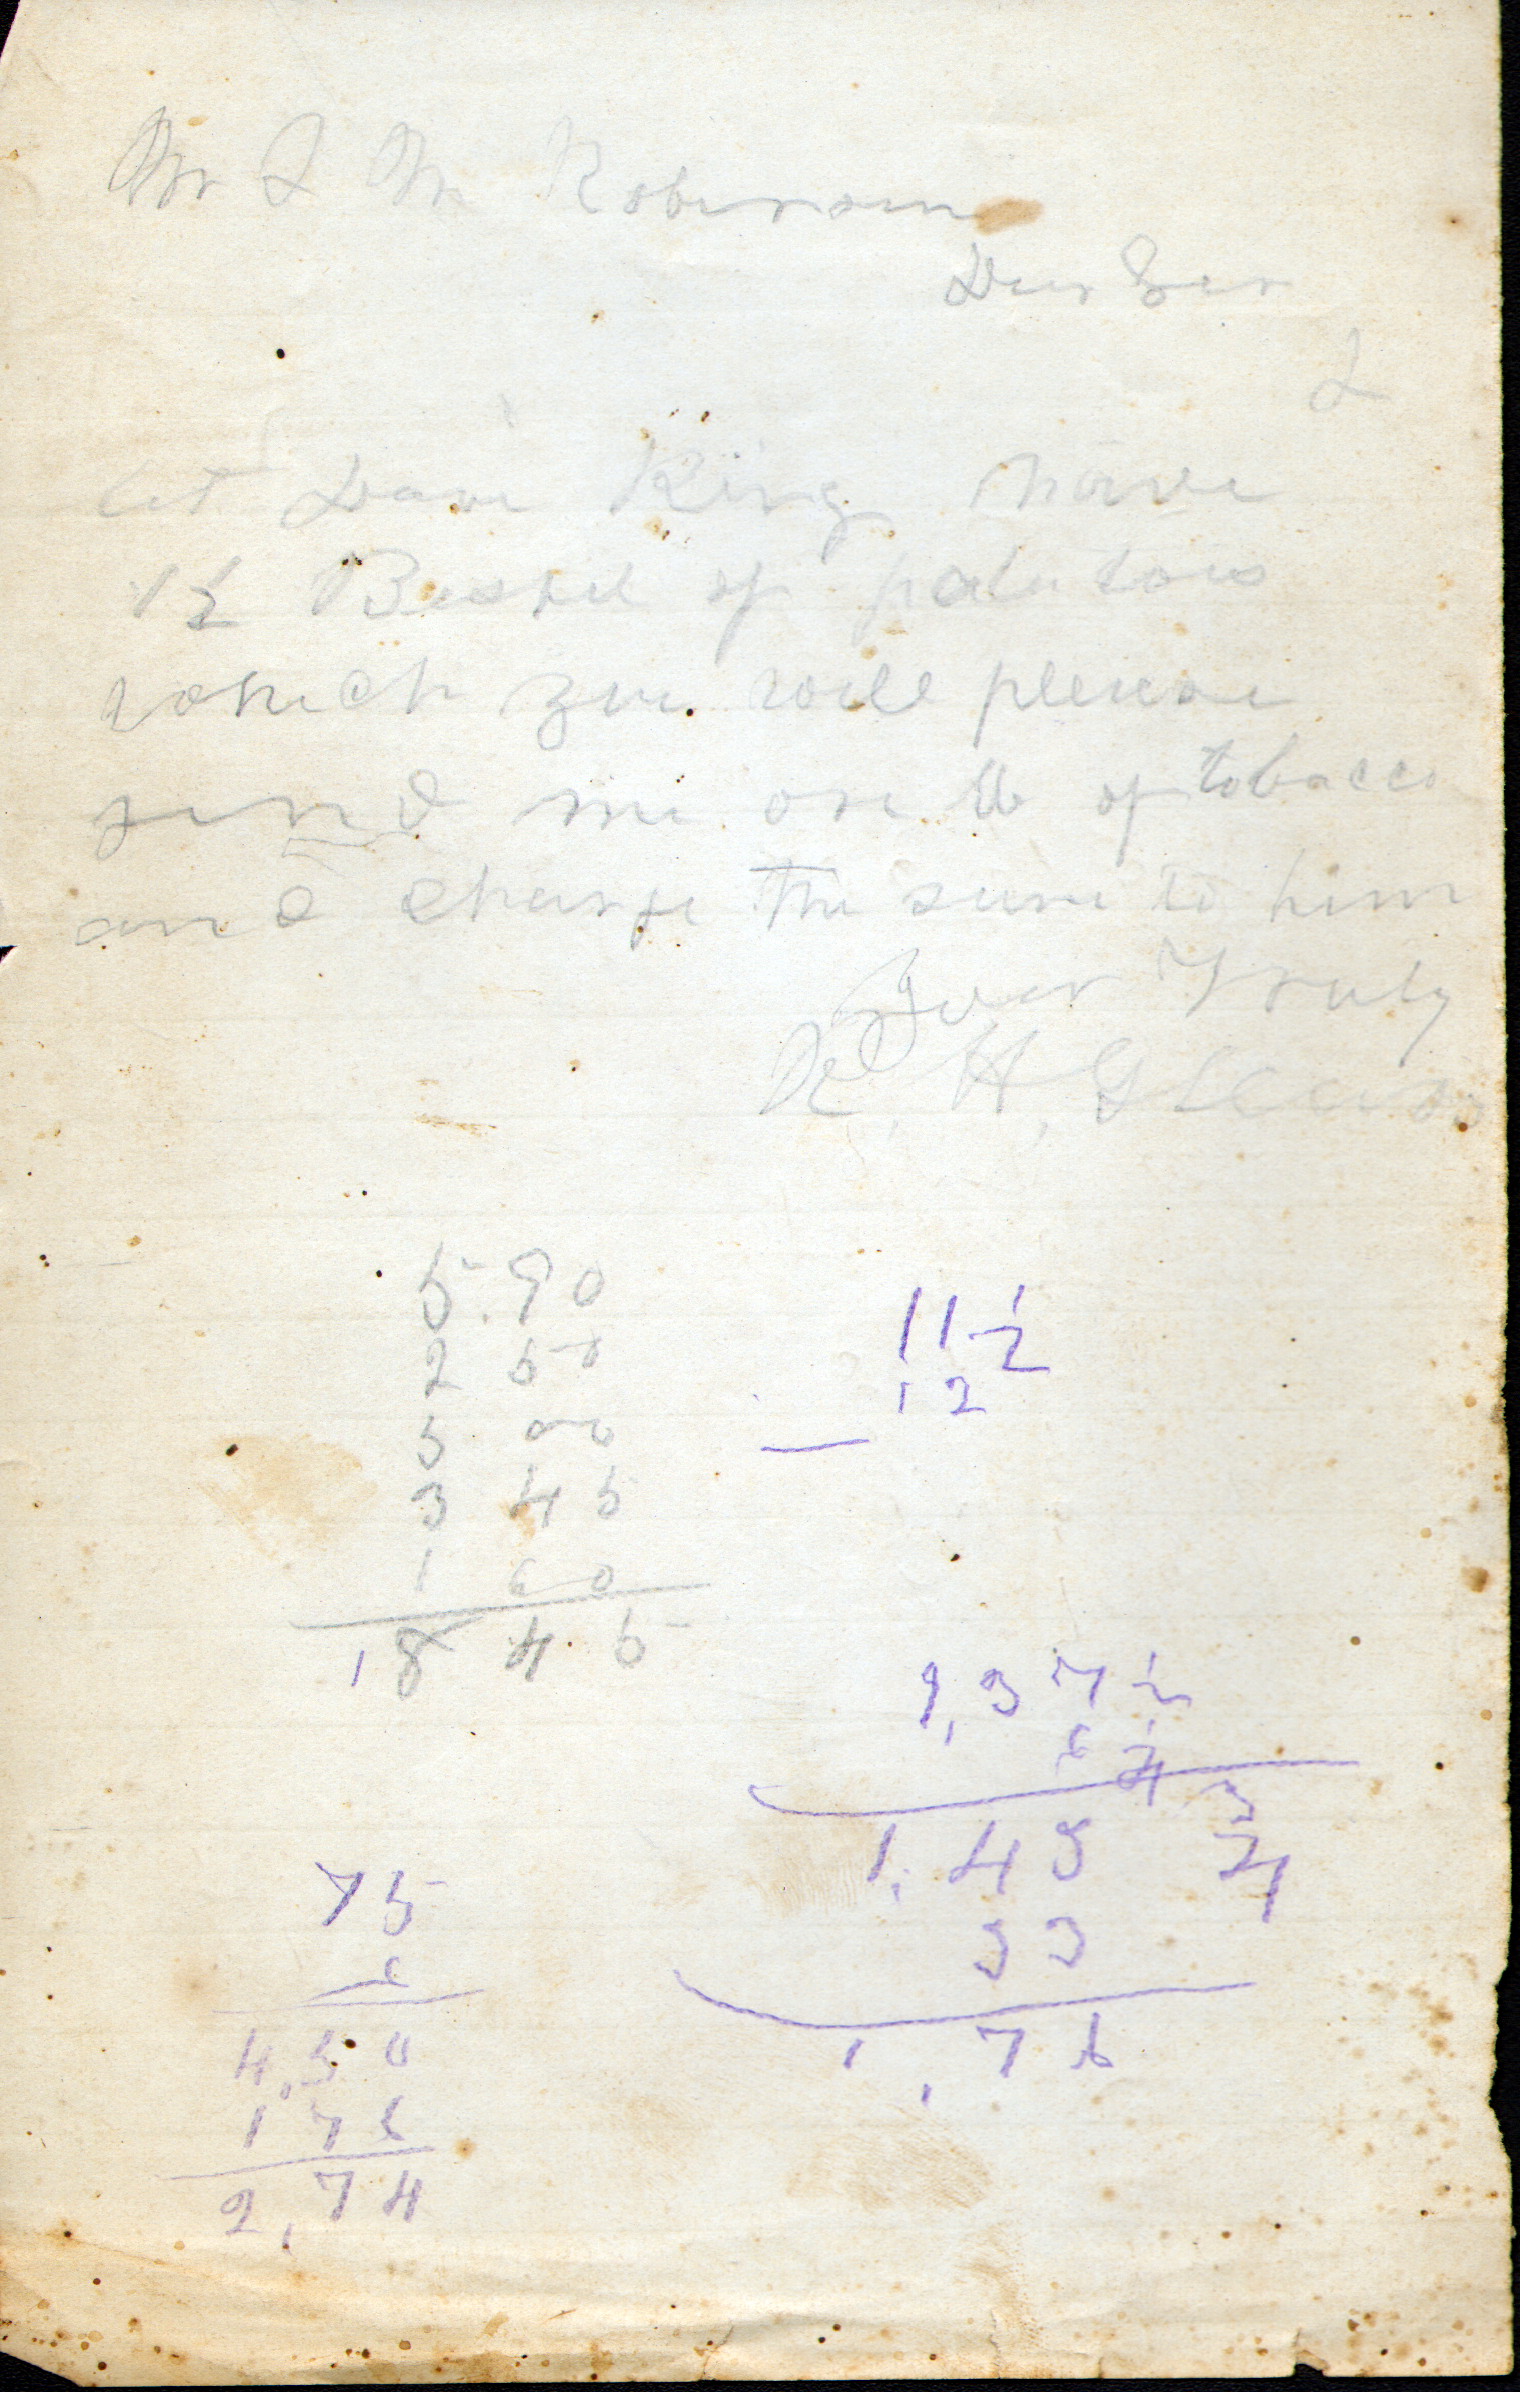 Mr L M Robinson
Dear Ser
I
let Dave King have
1½ Bushel of potatois
which you will please
send me one lb of tobacco
and charge the sum to him
Your Truly
R. H.
5.90
2 50
5 00
3 45
1 60
18 45
11½
12
2,37½
6¼
1,43 ¾
33
1,76
75
6
4,50
1 76
2,74